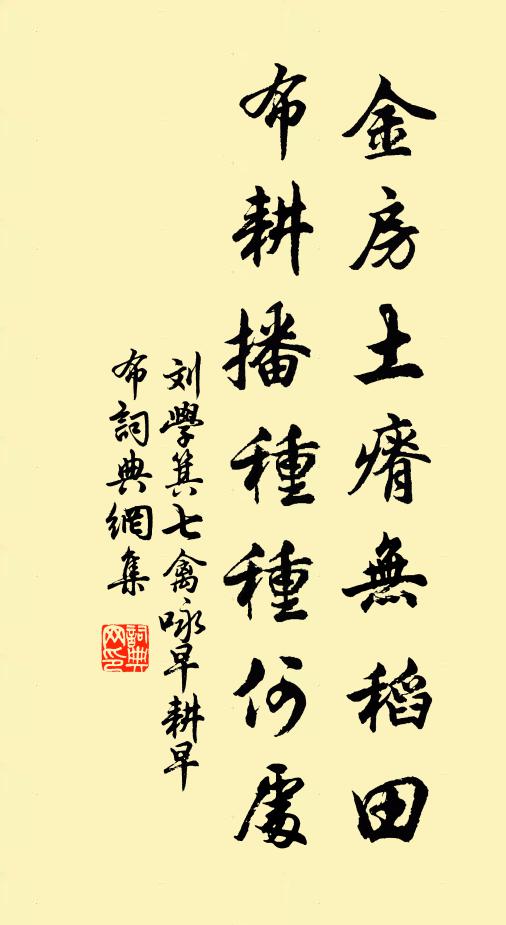 金房土瘠無稻田
布耕播種種何處
刘學箕七禽咏早耕早
布詞典網集
詞典
网印